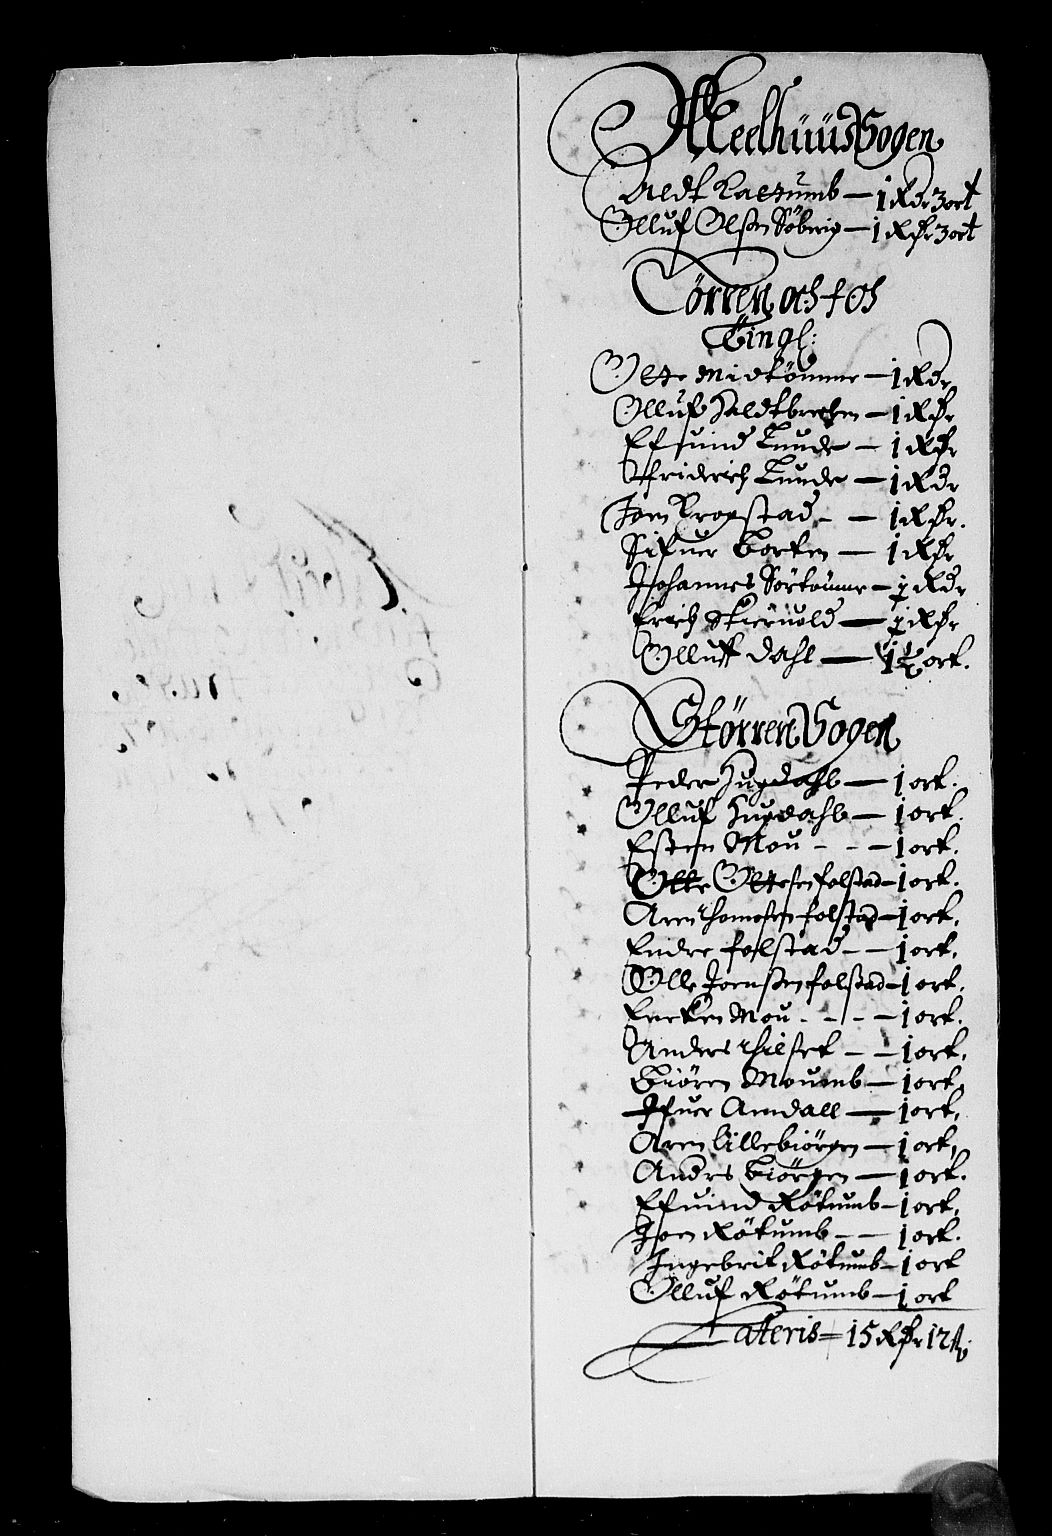 Meelhuuß Sogen
Aldt Kaesumb — 1 Rdr 3 ort
Olluf Olßen Söberig — 1 Rdr 3 ort
Törren och
Tingl:
Olle Midtömme — 1 Rdr
Olluf Haldtbrechen — 1 Rdr
Efuind Lunde — 1 Rdr
Friderich Lunde — 1 Rdr
Joen Krogstad - — 1 Rdr.
Sifuer Borten — 1 Rdr
Johannes Sörtömme — ½ Rdr
Erich Skieruold — ½ Rdr
Olluff Dahl — 1½ ort.
Störren Sogen
Peder Hugdahl — 1 ort.
Olluf Hugdahl — 1 ort.
Esten Mou - - — 1 ort.
Olle Ollesen folstad — 1 ort.
Aren Thomesen folstad — 1 ort.
Endre folstad - — 1 ort.
Olle Joenßen folstad — 1 ort.
Mou - - - — 1 ort.
Anders Hilset - — 1 ort.
Biören Moumb — 1 ort.
Ifuer Amdall — 1 ort.
Aren Lillebiörgen — 1 ort.
Andrs Biörgen — 1 ort.
Efuind Rötumb — 1 ort.
Joen Rötumb - — 1 ort.
Ingebrit Rötumb — 1 ort
Olluf Rötumb — 1 ort
Lateris — 15 Rdr 12 ß